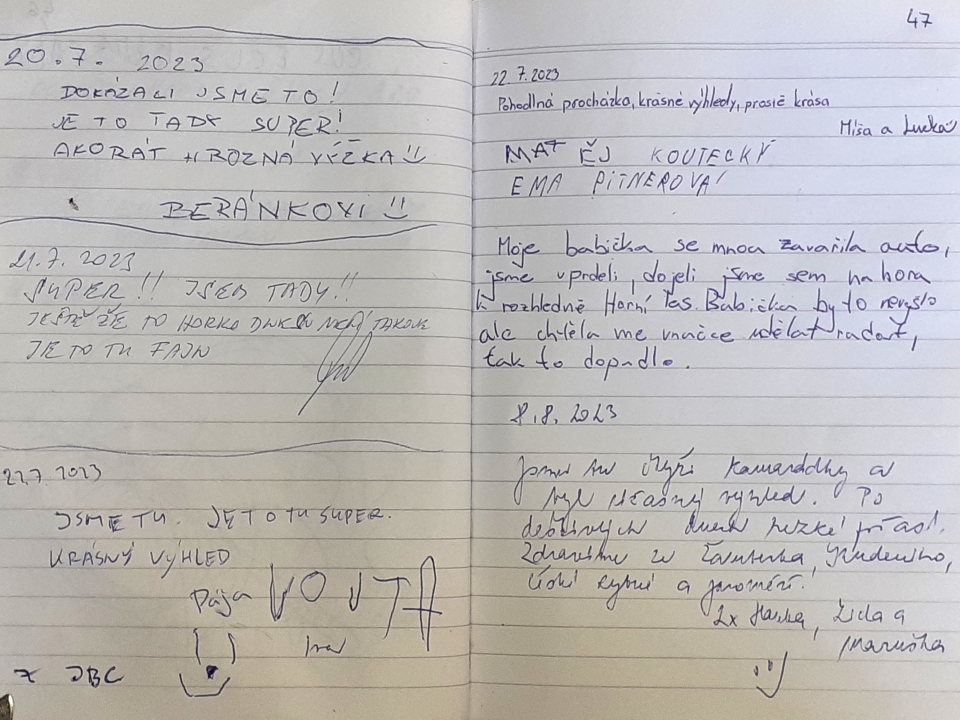 20.7. 2023
DOKÁZALI JSME TO!
JE TO TADY SUPER!
AKORÁT HROZNÁ VÝŠKA
BERÁNKOVI
21.7. 2023
SUPER!! JSEM TADY!!
JEŠTĚ ŽE TO HORKO DNESKA NENÍ TAKOVÉ
JE TO TU FAJN
22.7 2023
JSME TU. JE TO TU SUPER.
KRÁSNÝ VÝHLED
Pája VOJTA
Iva
z JBC
47
22.7.2023
Pohodlná procházka, krásné výhledy, prostě krása
Míša a Lucka
MATĚJ KOUTECKÝ
EMA PITNEROVÁ
Moje babička se mnou zavařila auto,
jsme v prdeli, dojeli jsme sem na hora
k rozhledně Horní Les. Babička by to nevyšlo
ale chtěla me vnučce udělat radost,
tak to dopadlo.
8.8. 2023
Jsme tu čtyři kamarádky a
byl úžasný výhled. Po
deštivých dnech hezké počasí.
Zdravíme ze Žamberka,
České Rybné a Jaroměř!
2x Hanka, Lida a
Maruška